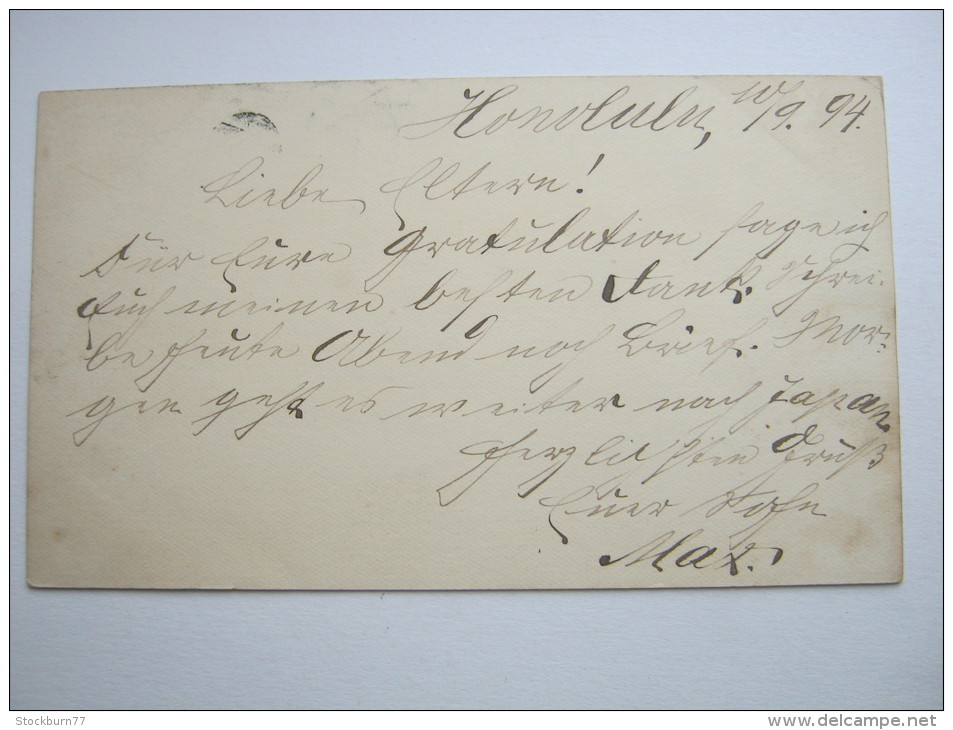 Honolulu, 10/9. 94.
Liebe Eltern!
Für Eure Gratulation sage ich
Euch meinen besten Dank. Schrei-
be heute Abend noch Brief. Mor-
gen geht es weiter nach Japan
Herzlichsten Gruß
Euer Sohn
Max.
Stockburn77
www.delcampe.net